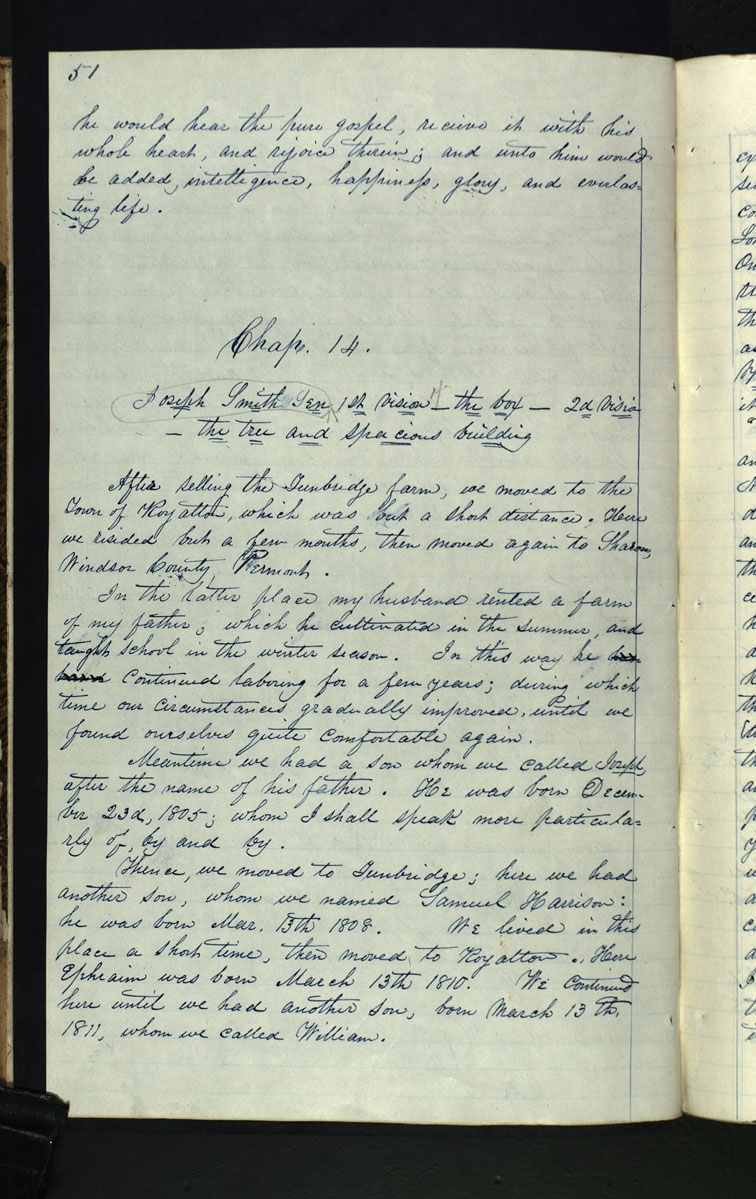 51
he would hear the pure gospel, recieve it with his
whole heart, and rejoice therein; and unto him would
be added, intelligence, happiness, glory, and everlas=
ting life.
Chap. 14.
Joseph Smith Sen 1st vision — the box — 2d visio
— the tree and spacious building
After selling the Tunbridge farm, we moved to the
Town of Royalton, which was but a short distance. Here
we resided but a few months, then moved again to Sharon,
Windsor County Vermont.
In the latter place my husband rented a farm
of my father; which he cultivated in the summer, and
taught school in the winter season. In this way he
continued laboring for a few years; during which
time our circumstances gradually improved, until we
found ourselves quite comfortable again.
Meantime we had a son whom we called Joseph,
after the name of his father. He was born Decem-
ber 23d, 1805; whom I shall speak more particula=
rly of, by and by.
Thence, we moved to Tunbridge; here we had
another son, whom we named Samuel Harrison:
he was born Mar. 13th 1808. We lived in this
place a short time, then moved to Royalton. Here
Ephraim was born March 13th 1810. We continued
here until we had another son, born March 13th,
1811, whom we called William.